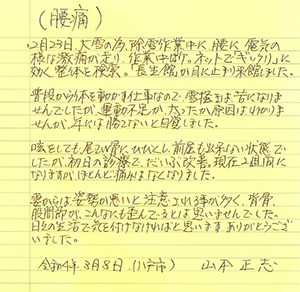 (腰痛)
2月23日、大雪の為、除雪作業中に腰に電気の
様な激痛が走り、作業中断。ネットで"ぎっくり"に
効く整体を検索。"長生館"が目に止まり来館しました。
普段から体を動かす仕事なので、雪掻きは苦になりま
せんでしたが、運動不足か、太ったか原因は分かりま
せんが、年には勝てないと自覚しました。
咳をしても、尾てい骨にひびくし、前屈も出来ない状態で
したが、初日の診療で、だいぶ改善。現在2週間に
なりますが、ほとんど痛みはなくなりました。
妻からは姿勢が悪いと注意される事が多く、背骨、
股関節が、こんなにも歪んでるとは思いませんでした。
日々の生活で気を付けなければと思います。ありがとうござ
いました。
令和4年3月8日(八戸市) 山本 正志